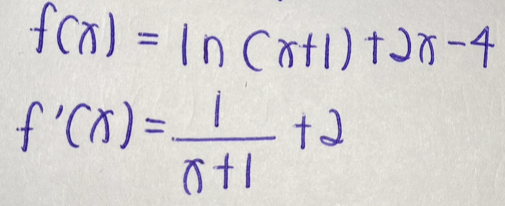 f(x) = ln(x+1)+2x-4
f'(x) = 1/(x+1) + 2